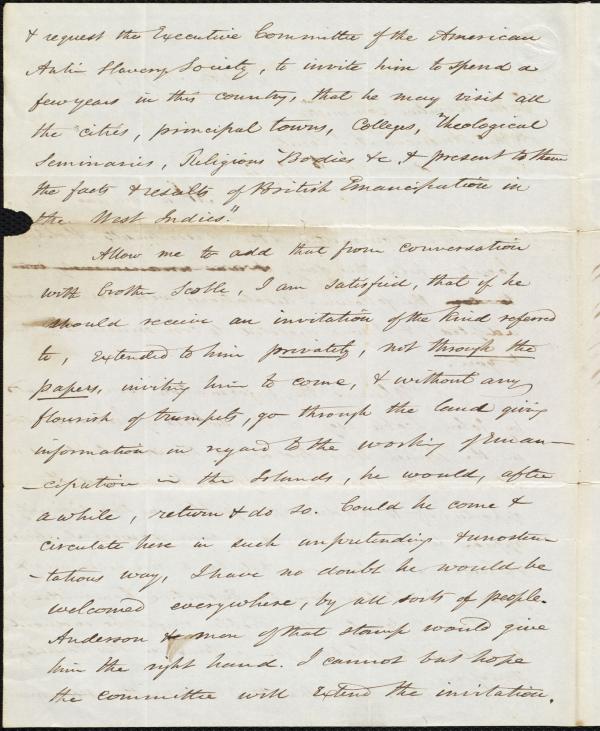 & request the Executive Committee of the American
Anti Slavery Society, to invite him to spend a
few years in this country, that he may visit all
the cities, principal towns, Colleges, Theological
Seminaries, Religious Bodies &c, & present to them
the facts & results of British Emancipation in
the West Indies."
Allow me to add that from conversation
with brother Scoble, I am satisfied, that if he
should receive an invitation of the kind referred
to, extended to him privately, not through the
papers, inviting him to come, & without any
flourish of trumpets, go through the land giving
information in regard to the working of Eman-
-cipation in the Islands, he would, after
awhile, return & do so. Could he come &
circulate here in such unpretending & unosten-
-tatious way, I have no doubt he would be
welcomed everywhere, by all sorts of people.
Anderson & men of that stamp would give
him the right hand. I cannot but hope
the committee will extend the invitation.